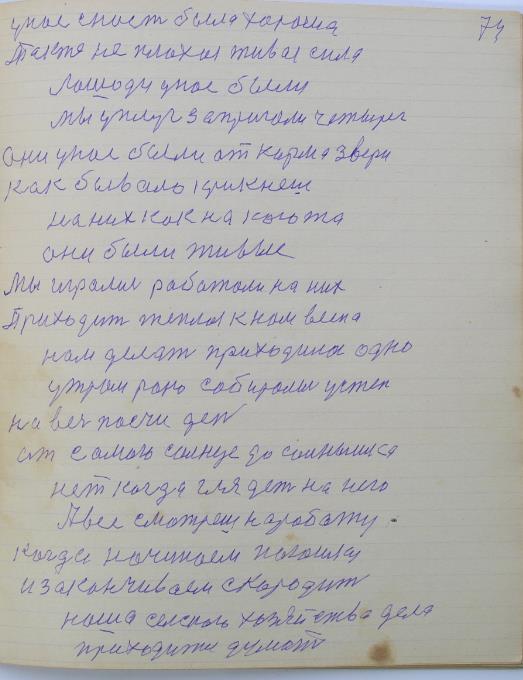 унас сность была хороша 79
также не плохая живая сила
Лошоди унас были
мы уплуг запригали четырех
они унас были от карма звери
как бывало крикнеш
на них как на когота
они были живые
мы играли работали на них
Приходит теплая к нам весна
нам делат приходился одно
утрам рано собиролис устеп
на веч посчи ден
от самого солнце до солнышка
нет когда глядет на него
Авсе смотреш наработу.
когда начинаем
и заканчиваем скародит
наша селского хозяйства дела
приходитс думат